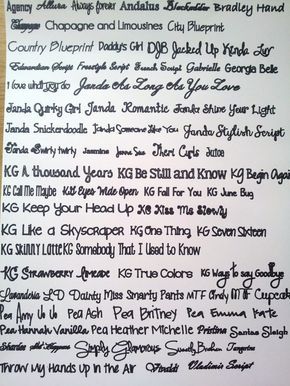 Agency Allura Always forever Andalus Blackadder Bradley Hand
Champagne and Limousines City Blueprint
Country Blueprint Daddy's Girl DJB Jacked Up Kinda Luv
Edwardian Script Freestyle Script French Script Gabrielle Georgia Belle
I love what you do Janda As Long As You Love
Janda Quirky Girl Janda Romantic Janda Shine Your Light
Janda Snickerdoodle Janda Someone Like You Janda Stylish Script
Janda Swirly twirly Jasmine Jenna Sue Jheri Curls Juice
KG A thousand Years KG Be Still and Know KG Begin Again
KG Call Me Maybe KG Eyes Wide Open KG Fall For You KG June Bug
KG Keep Your Head Up KG Kiss Me Slowly
KG Like a Skyscraper KG One Thing KG Seven Sixteen
KG Skinny Latte KG Somebody That I Used to Know
KG Strawberry Limeade KG True Colors KG Ways to Say Goodbye
Lavanderia LD Dainty Miss Smarty Pants MTF Cindy MTF Cupcake
Pea Amy Pea Ash Pea Britney Pea Emma Kate
Pea Hannah Vanilla Pea Heather Michelle Pristina Santas Sleigh
Simply Glamorous Sweetly Broken Tangerine
Throw My Hands Up in the Air Vivaldi Vladimir Script